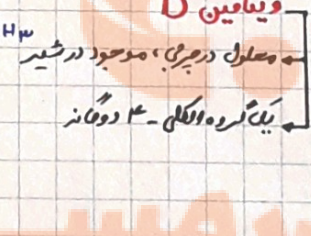 ویتامین D
H3
محلول در چربی، موجود در شیر
یک گروه الکلی - ۴ دوگانه